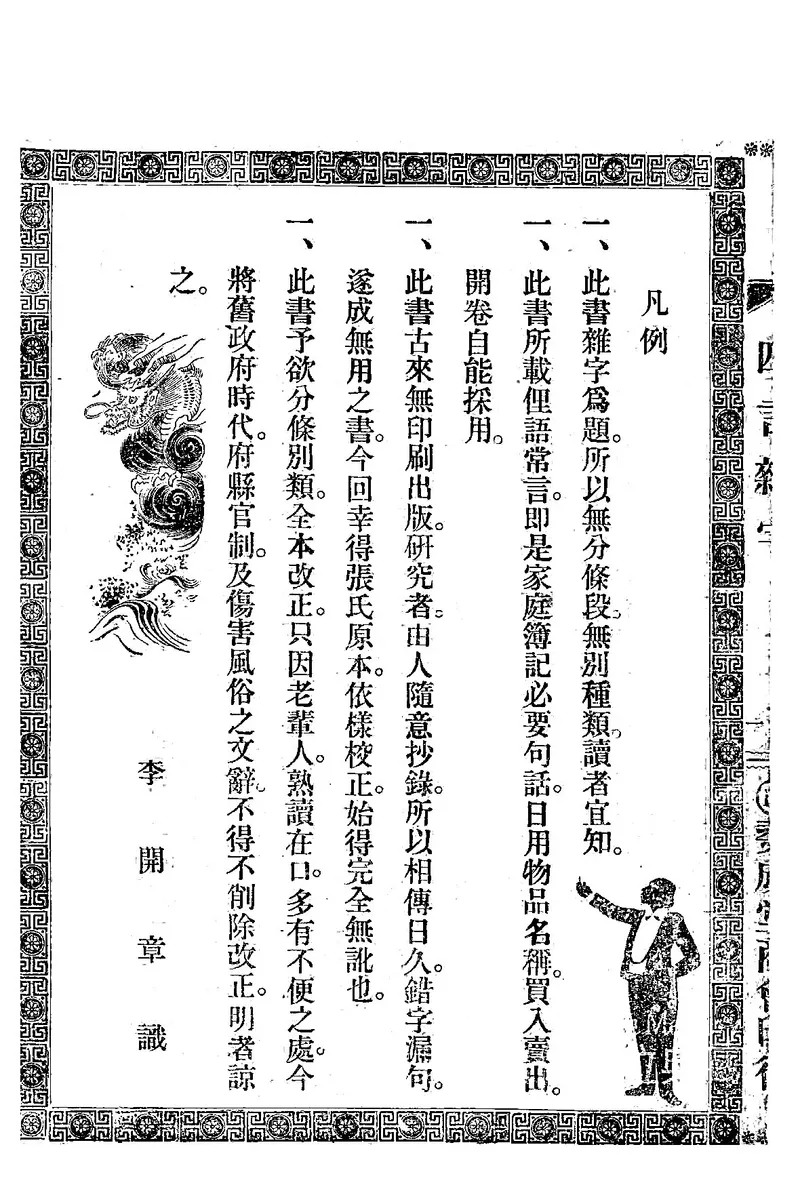 凡例
一、此書雜字爲題。所以無分條段。無別種類。讀者宜知。
一、此書所載俚語常言。即是家庭簿記必要句話。日用物品名稱。買入賣出。
開卷自能採用。
一、此書古來無印刷出版。研究者。由人隨意抄錄。所以相傳日久。錯字漏句。
遂成無用之書。今回幸得張氏原本。依樣校正。始得完全無訛也。
一、此書予欲分條別類。全本改正。只因老輩人。熟讀在口。多有不便之處。今
將舊政府時代。府縣官制。及傷害風俗之文辭。不得不削除改正。明者諒
之。
李開章識
四言雜字